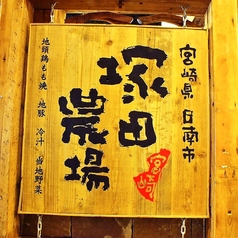 宮崎県日南市
塚田
農場
宮崎
地頭鶏もも焼 地豚 冷汁 当地野菜